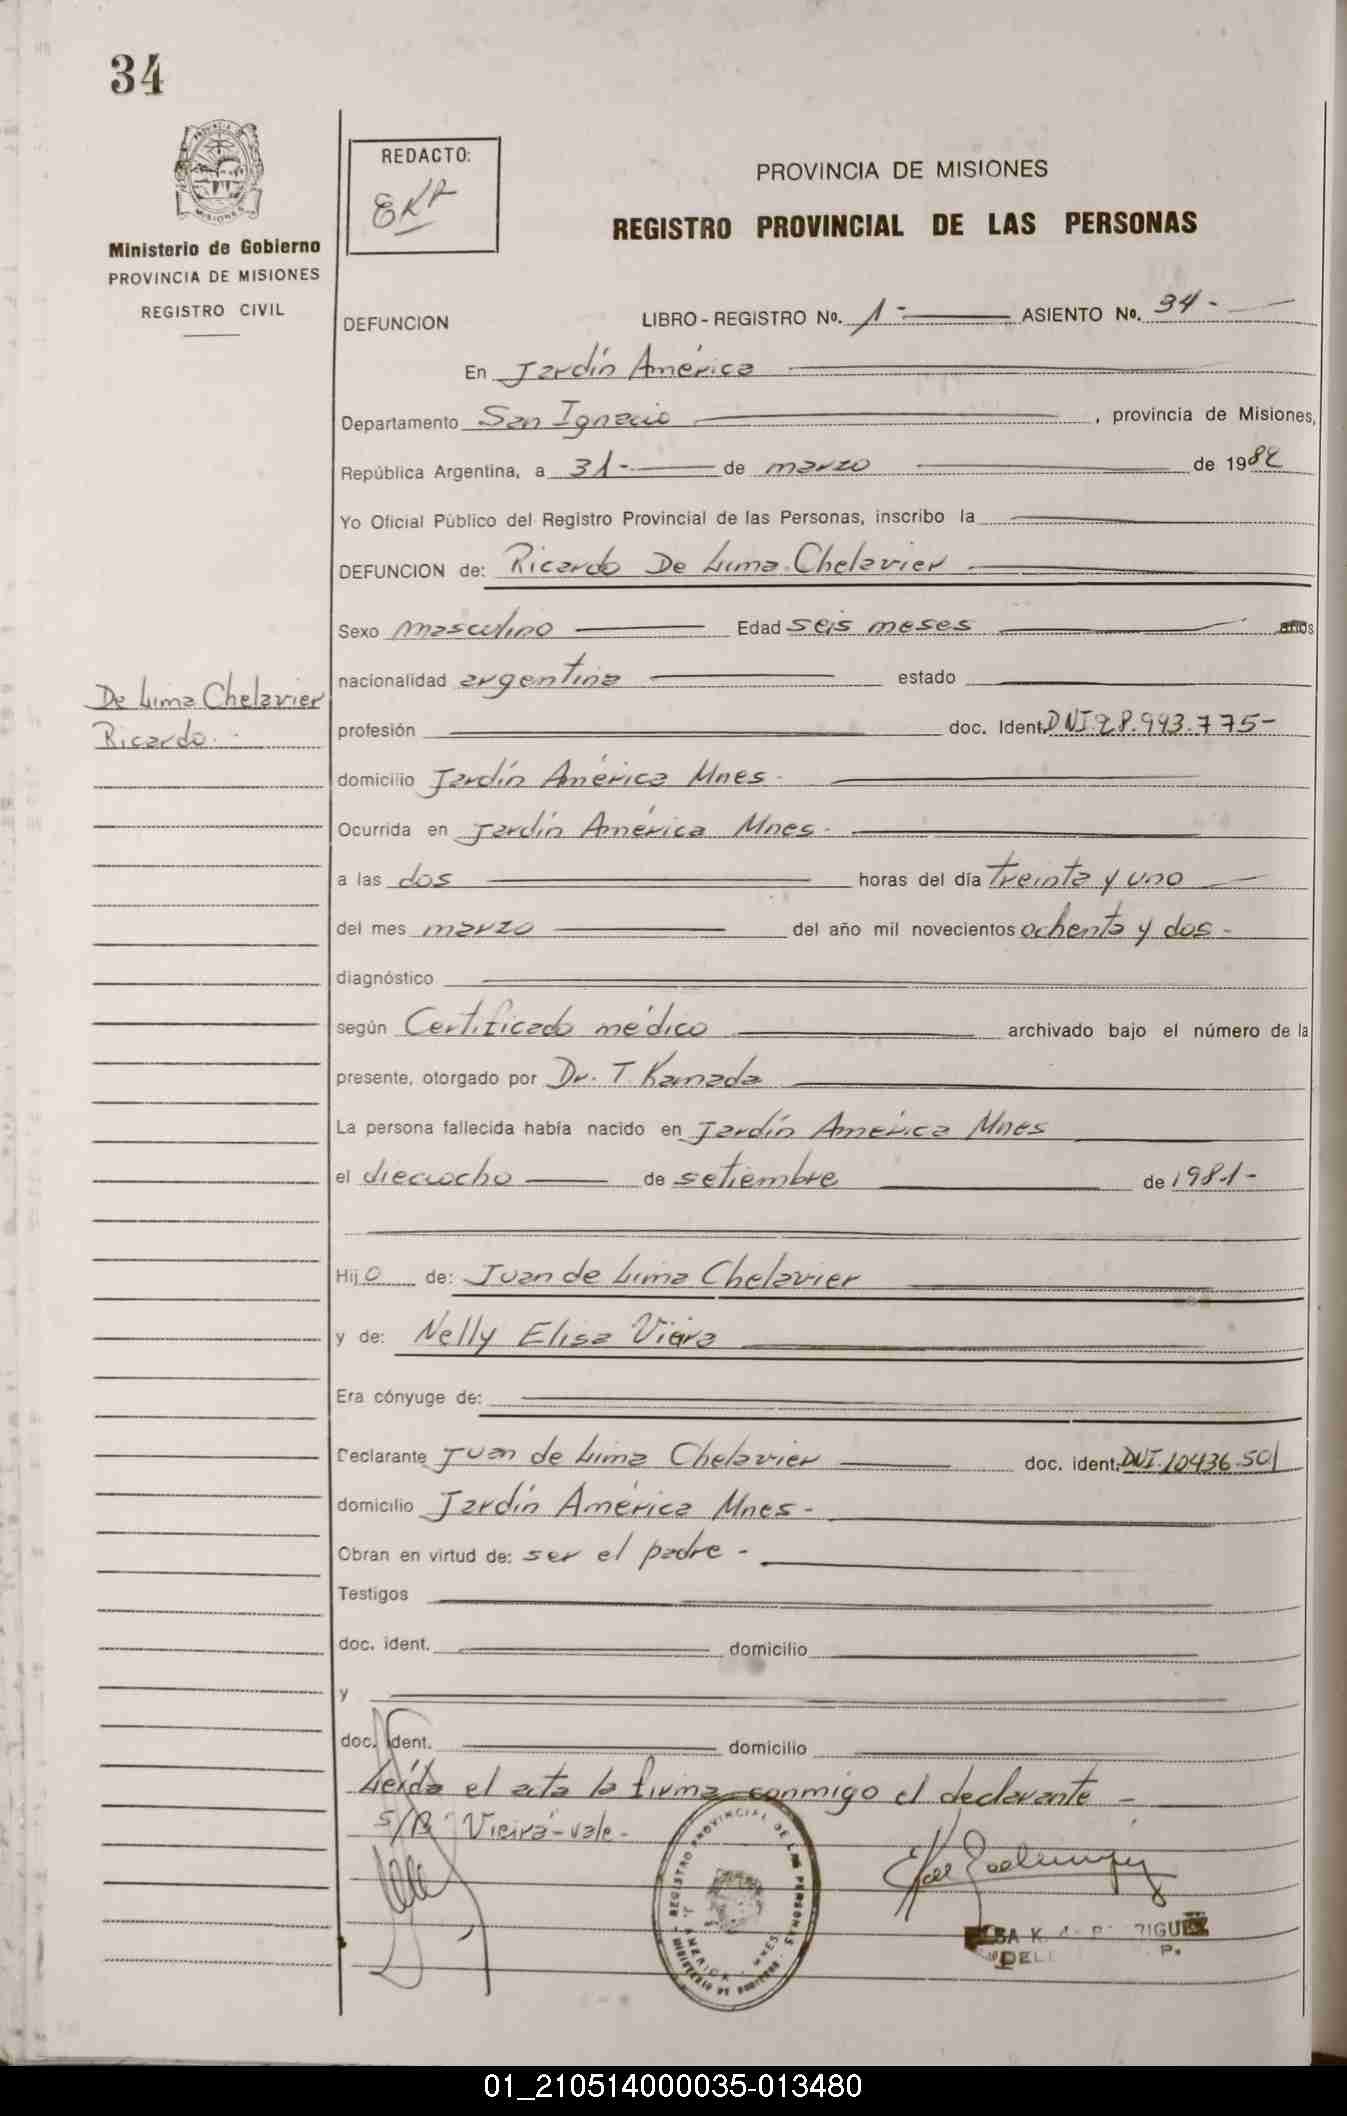 34
Ministerio de Gobierno
PROVINCIA DE MISIONES
REGISTRO CIVIL
REDACTO:
PROVINCIA DE MISIONES
REGISTRO PROVINCIAL DE LAS PERSONAS
DEFUNCION LIBRO-REGISTRO No. 1- ASIENTO No. 34-
En Jardín América
Departamento San Ignacio, provincia de Misiones,
República Argentina, a 31- de marzo de 1982
Yo Oficial Público del Registro Provincial de las Personas, inscribo la
DEFUNCION de: Ricardo De Lima Chelavier
Sexo masculino Edad seis meses años
De Lima Chelavier
Ricardo
nacionalidad argentina estado
profesión doc. Ident. DNI 28.943.775-
domicilio Jardín América Mnes-
Ocurrida en Jardín América Mnes-
a las dos horas del día treinta y uno
del mes marzo del año mil novecientos ochenta y dos-
diagnóstico
según Certificado médico archivado bajo el número de la
presente, otorgado por Dr. T. Kamada
La persona fallecida había nacido en Jardín América Mnes
el dieciocho de setiembre de 1981-
Hijo de: Juan de Lima Chelavier
y de: Nelly Elisa Viera
Era cónyuge de:
Declarante Juan de Lima Chelavier doc. ident. DNI 10436.501
domicilio Jardín América Mnes-
Obran en virtud de: ser el padre-
Testigos
doc. ident. domicilio
y
doc. ident. domicilio
Leída el acta la firma conmigo el declarante-
S/R Vieira-vale-
REGISTRO PROVINCIAL DE LAS PERSONAS
J. AMERICA - MNES
MINISTERIO DE GOBIERNO
01_210514000035-013480